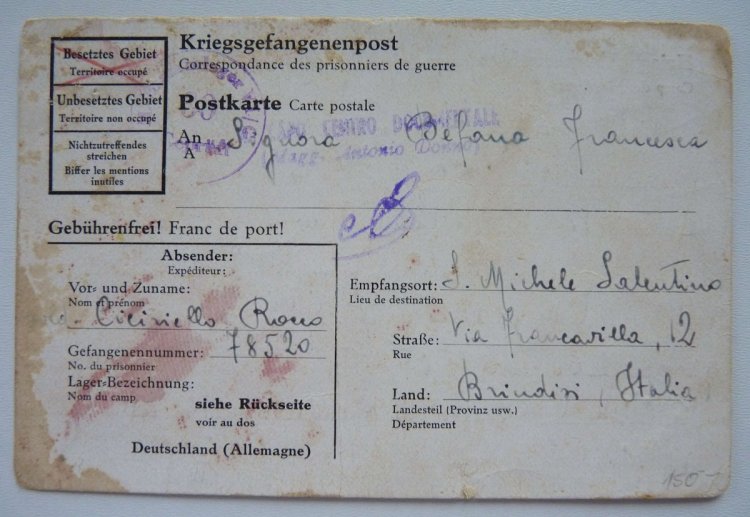 Besetztes Gebiet
Territoire occupé
Unbesetztes Gebiet
Territoire non occupé
Nichtzutreffendes
streichen
Biffer les mentions
inutiles
Kriegsgefangenenpost
Correspondance des prisonniers de guerre
Postkarte Carte postale
CENTRO DOCUMENTALE
Magg. Antonio
An Signora Defana Francesca
A
Gebührenfrei! Franc de port!
Absender:
Expéditeur:
Vor- und Zuname:
Nom et prénom
Ciciriello Rocco
Gefangenennummer: 78520
No. du prisonnier
Lager-Bezeichnung:
Nom du camp
siehe Rückseite
voir au dos
Deutschland (Allemagne)
Empfangsort: S. Michele Salentino
Lieu de destination
Straße: Via Francavilla, 12
Rue
Land: Brindisi, Italia
Landesteil (Provinz usw.)
Département
150